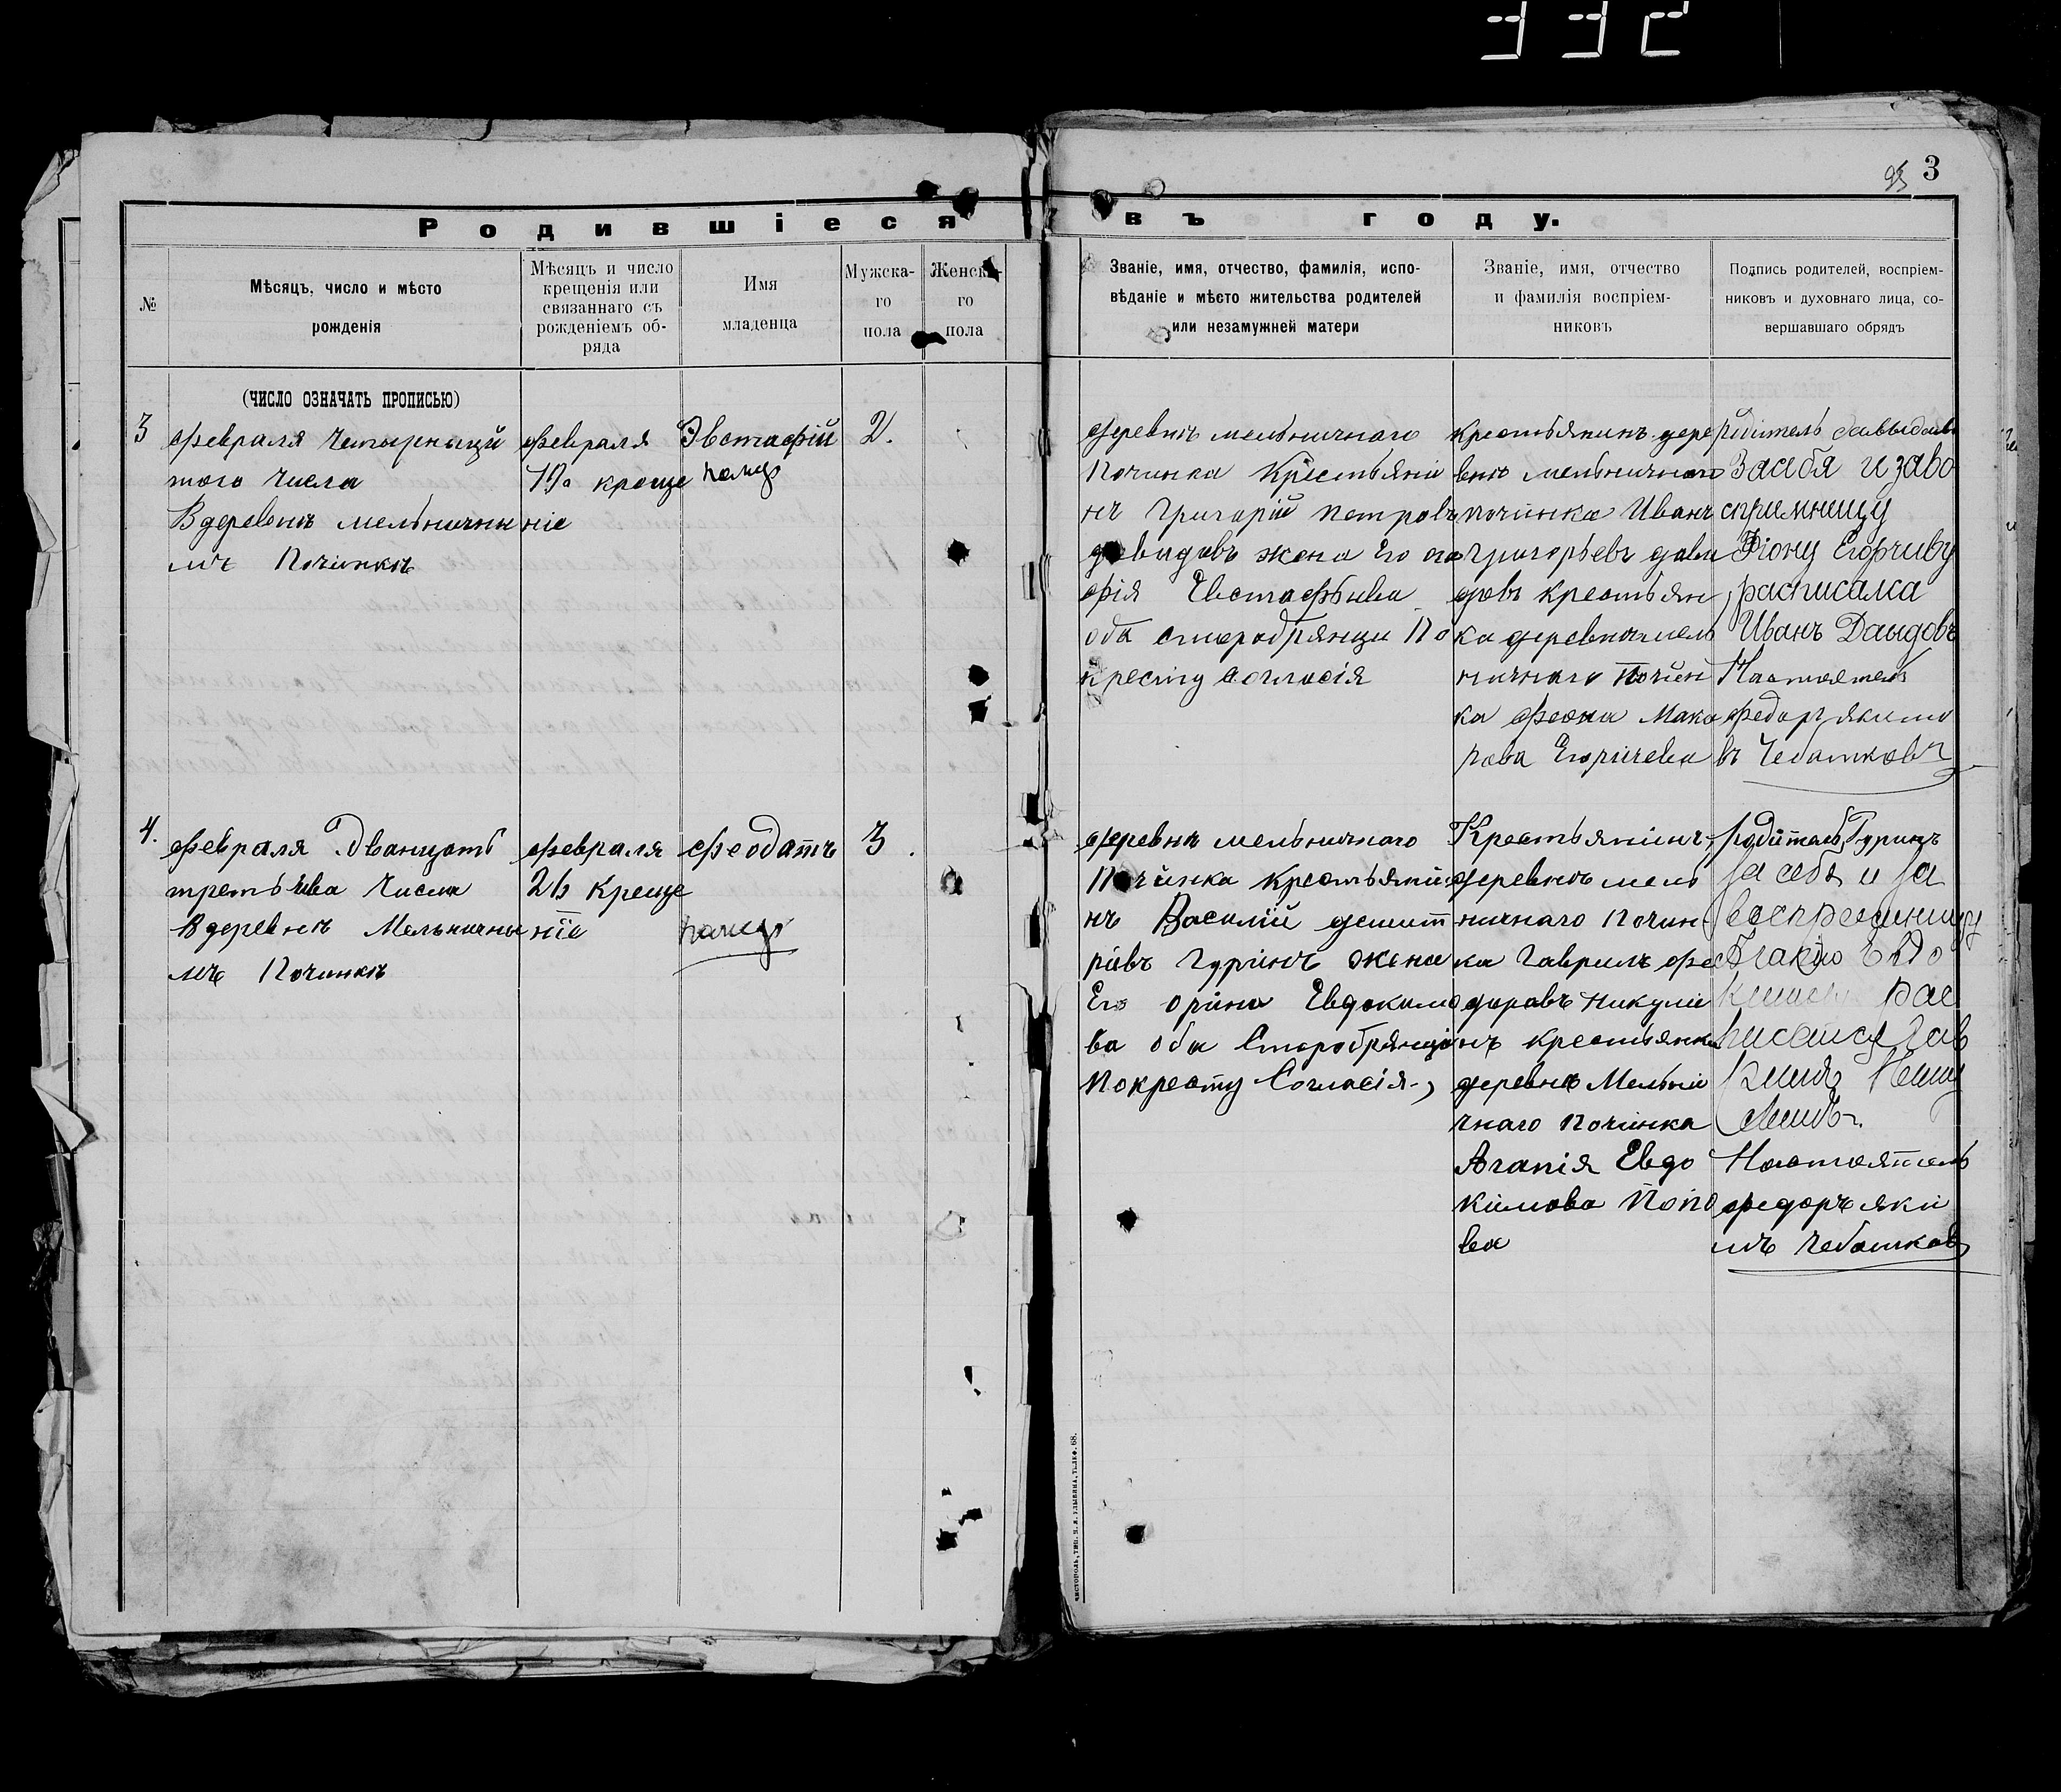 332
93 3
Родившіеся въ году.
№
Мѣсяцъ, число и мѣсто
рожденія
Мѣсяцъ и число
крещенія или
связаннаго съ
рожденіемъ об-
ряда
Имя
младенца
Мужска-
го
пола
Женска-
го
пола
Званіе, имя, отчество, фамилія, испо-
вѣданіе и мѣсто жительства родителей
или незамужней матери
Званіе, имя, отчество
и фамилія воспріем-
никовъ
Подпись родителей, воспріем-
никовъ и духовнаго лица, со-
вершавшаго обрядъ
(ЧИСЛО ОЗНАЧАТЬ ПРОПИСЬЮ)
3
февраля четырнацй
того числа
Вдеревнѣ мельничны
мъ Починкѣ
февраля
19го креще
ніе
Эвстафій
2.
деревнѣ мельничного
Починка Крестьяни
нъ Григорій петровъ
давидовъ жена Его со
фія Евстафьива
оба старобрянци По
кресту согласія
крестьянинъ дере
внѣ мельничного
починка Иванъ
григорьевъ дави
довъ крестьян
ка деревнимель
ничнаго Почин
ка феона Мака
рова Егоричева
родитель давыдовъ
Засебя и заво
сприемницу
Фіону Егорчиву
расписалса
Иванъ Давыдовъ
Настоятель
федоръ якимо
въ Чебатковъ
4.
февраля Дванцать
третьива числа
Вдеревнѣ Мельничны
мъ Починкѣ
февраля
26 Креще
ніе
феодатъ
3.
деревни мельничнаго
Починка крестьяни
нъ Василій демит
ріевъ Гуринъ жена
Его орина Евдокимо
ва оба Старобрянци
Покресту Согласія
Крестьянинъ
деревнѣ мель
ничнаго почин
ка Гаврилъ фе
доровъ никули
нъ крестьянка
деревнѣ Мельни
чнаго Починка
Агапія Евдо
кимова Попо
ва
родитель Гуринъ
За себя и За
воспреемницу
Агапию Евдо
рас
писался Гав
Настоятель
федоръ яки
мъ Чебатковъ